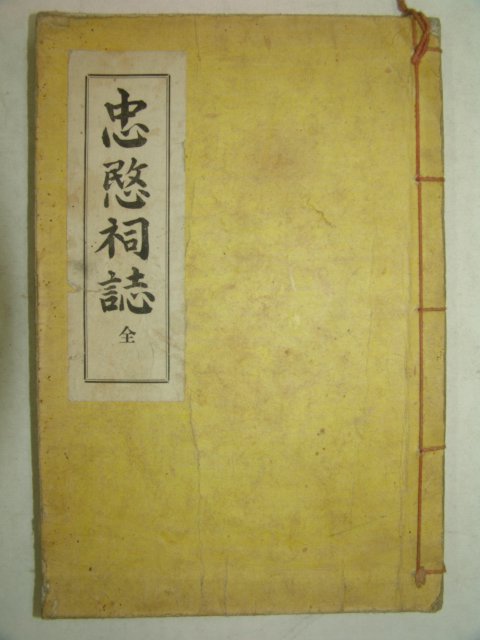 忠愍祠誌
全